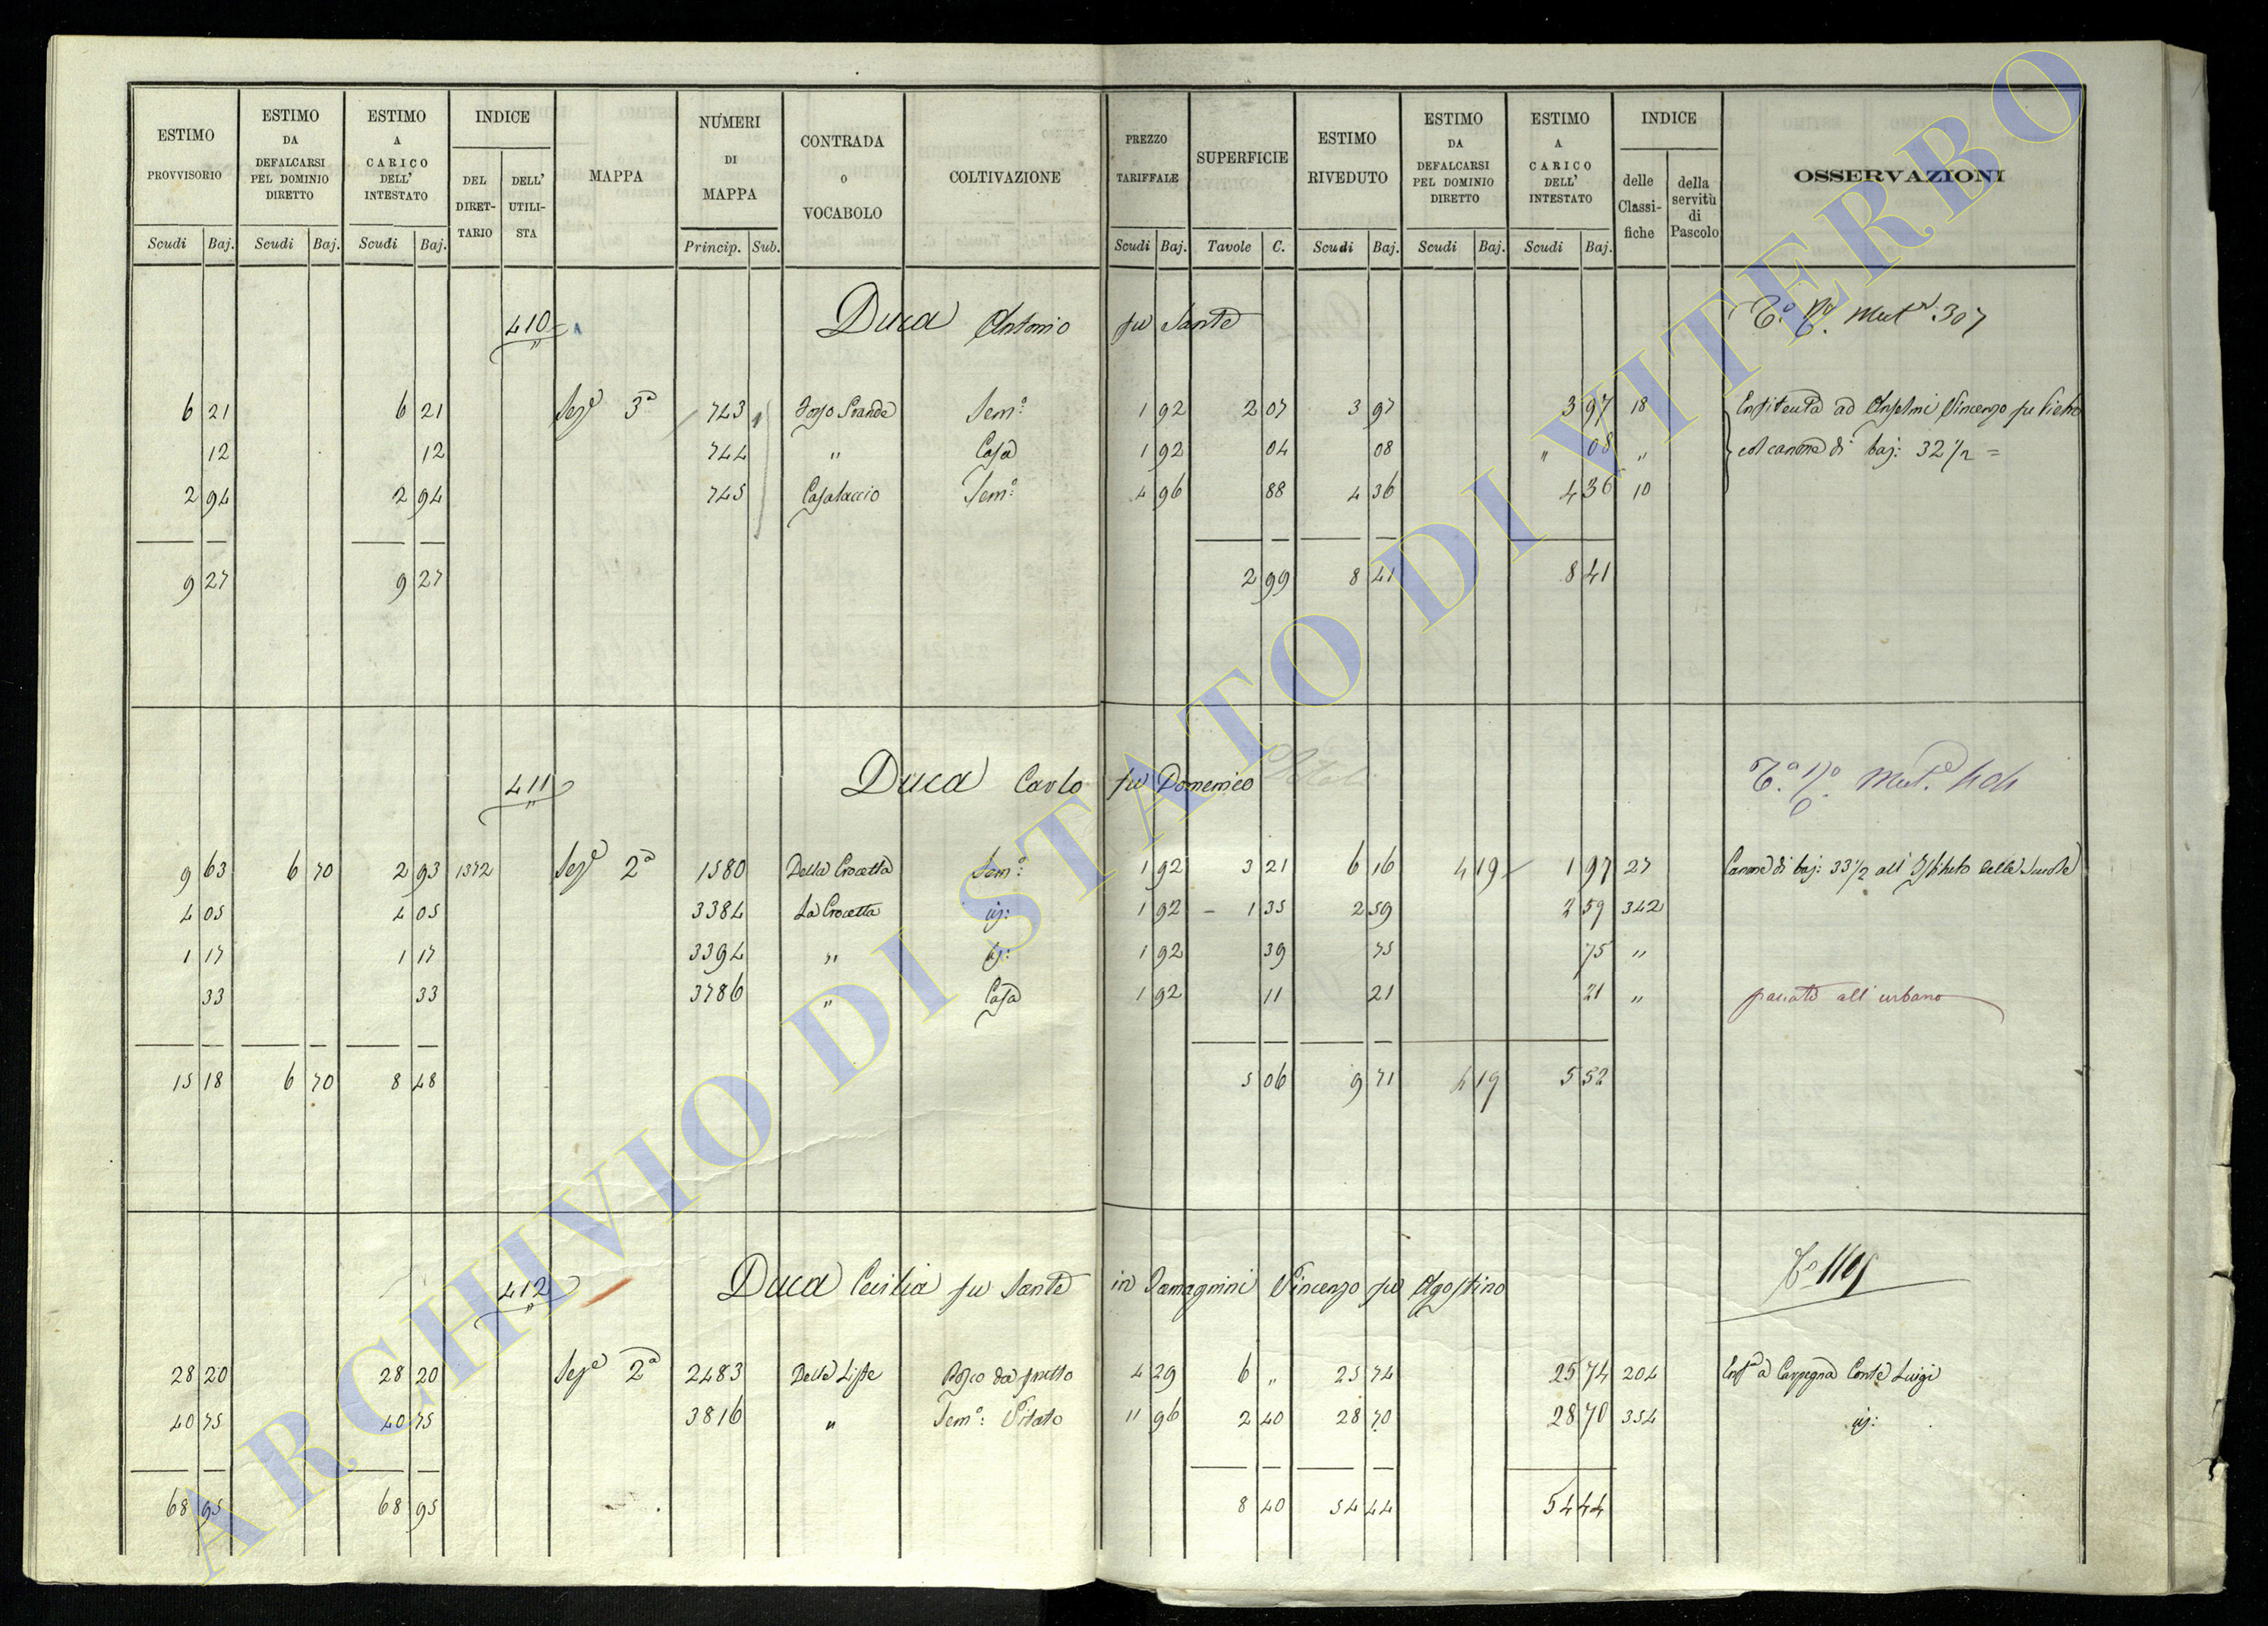 ESTIMO PROVVISORIO | ESTIMO DA DEFALCARSI PEL DOMINIO DIRETTO | ESTIMO A CARICO DELL' INTESTATO | INDICE | MAPPA | NUMERI DI MAPPA | CONTRADA O VOCABOLO | COLTIVAZIONE | PREZZO TARIFFALE | SUPERFICIE | ESTIMO RIVEDUTO | ESTIMO DA DEFALCARSI PEL DOMINIO DIRETTO | ESTIMO A CARICO DELL' INTESTATO | INDICE | OSSERVAZIONI
DEL DIRETTARIO | DELL' UTILISTA | delle Classifiche | della servitù di Pascolo
Scudi Baj. | Scudi Baj. | Scudi Baj. | Princip. Sub. | Scudi Baj. | Tavole C. | Scudi Baj. | Scudi Baj. | Scudi Baj.
410 Duca Antonio fu Sante 307
6 21 | 6 21 | Sez.e 3a | 743 | Grande | Sem.o | 1 92 | 2 07 | 3 97 | 3 97 | 18 | Enfiteuta ad Anselmi Vincenzo fu Pietro
12 | 12 | 744 | " | Casa | 1 92 | 04 | 08 | " 08 | " | col canone di baj: 32 1/2 =
2 94 | 2 94 | 745 | Casalaccio | Sem.o | 4 96 | 88 | 4 36 | 4 36 | 10
9 27 | 9 27 | 2 99 | 8 41 | 8 41
411 Duca Carlo fu Domenico
9 63 | 6 70 | 2 93 | 1372 | Sez.e 2a | 1580 | Della Crocetta | Sem.o | 1 92 | 3 21 | 6 16 | 4 19 | 1 97 | 27 | Canone di baj: 33 1/2 all' Istituto delle Scuole
4 05 | 4 05 | 3384 | La Crocetta | id: | 1 92 | 1 35 | 2 59 | 2 59 | 342
1 17 | 1 17 | 3394 | " | id: | 1 92 | 39 | 75 | 75 | "
33 | 33 | 3786 | " | Casa | 1 92 | 11 | 21 | 21 | " | passato all' urbano
15 18 | 6 70 | 8 48 | 5 06 | 9 71 | 4 19 | 5 52
412 Duca Cecilia fu Sante in Vincenzo fu Agostino
28 20 | 28 20 | Sez.e 2a | 2483 | Delle Liste | Bosco da frutto | 4 29 | 6 " | 25 74 | 25 74 | 204 | Enf.a a Carpegna Conte Luigi
40 75 | 40 75 | 3816 | " | Sem.o: Vitato | 11 96 | 2 40 | 28 70 | 28 70 | 354 | id:
68 95 | 68 95 | 8 40 | 54 44 | 54 44
ARCHIVIO DI STATO DI VITERBO